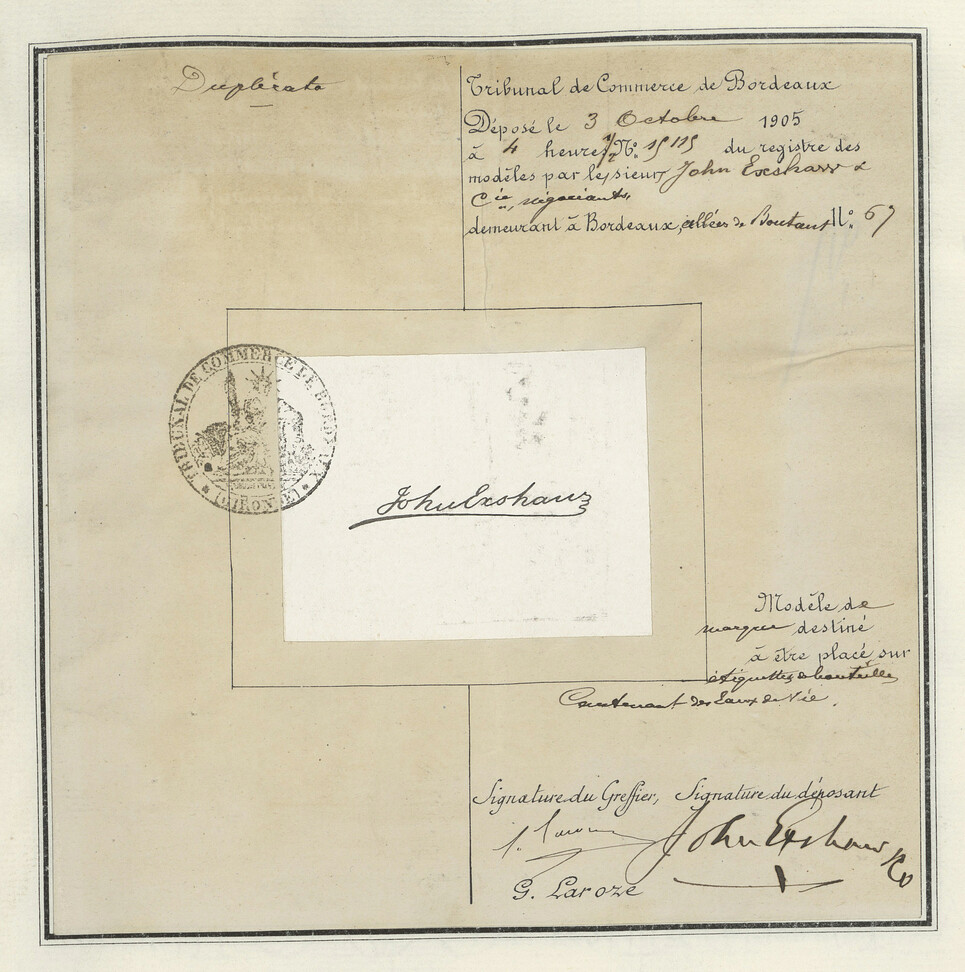 Duplicata
Tribunal de Commerce de Bordeaux
Déposé le 3 Octobre 1905
à 4 heures 1/2 N°: 15115 du registre des
modèles par les sieurs John Exshaw &
Cie, négociants,
demeurant à Bordeaux, allées de Boutaut N°: 67
TRIBUNAL DE COMMERCE DE BORDEAUX
(GIRONDE)
John Exshaw
Modèle de
marque destiné
à être placé sur
étiquettes de bouteilles
Contenant des Eaux de Vie.
Signature du Greffier, Signature du déposant
John Exshaw & Co
G. Laroze